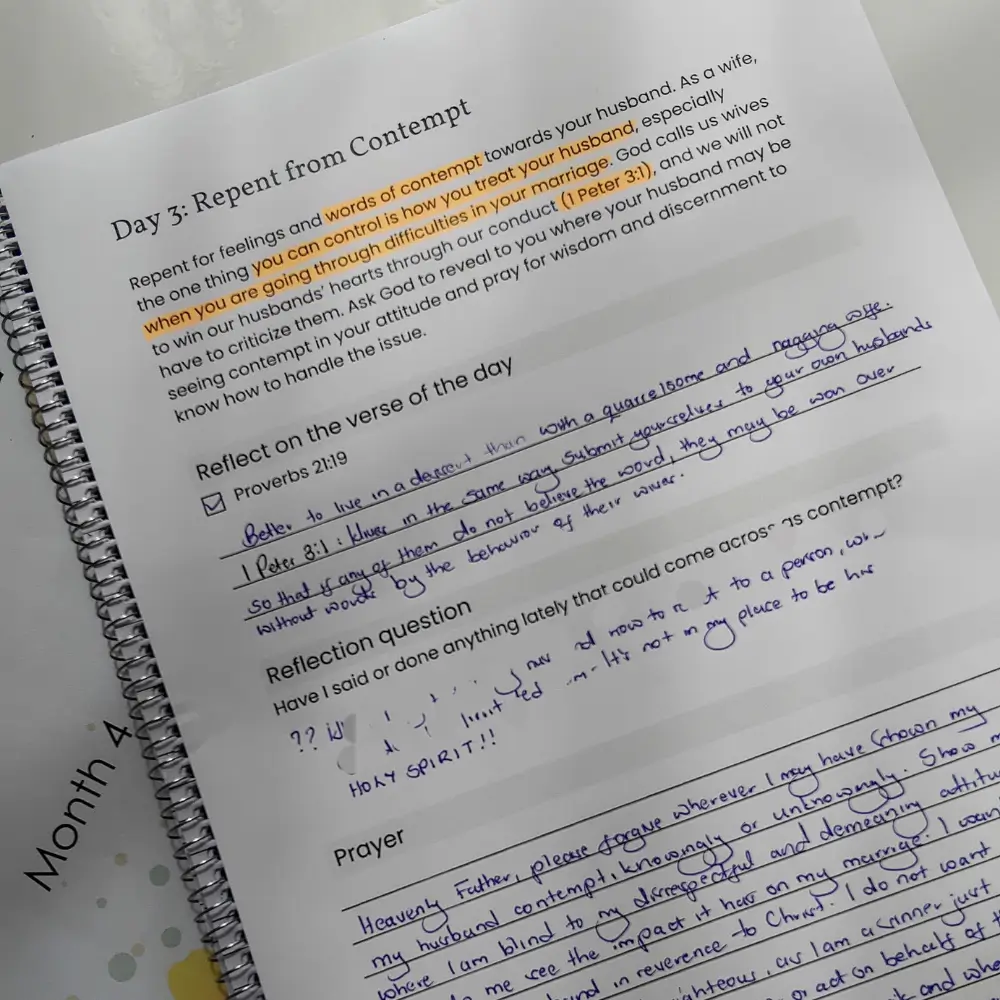 Day 3: Repent from Contempt
Repent for feelings and words of contempt towards your husband. As a wife,
the one thing you can control is how you treat your husband, especially
when you are going through difficulties in your marriage. God calls us wives
to win our husbands' hearts through our conduct (1 Peter 3:1), and we will not
have to criticize them. Ask God to reveal to you where your husband may be
seeing contempt in your attitude and pray for wisdom and discernment to
know how to handle the issue.
Reflect on the verse of the day
Proverbs 21:19
Better to live in a desert than with a quarrelsome and nagging wife.
1 Peter 3:1: Wives in the same way submit yourselves to your own husbands
so that if any of them do not believe the word, they may be won over
without words by the behaviour of their wives.
Reflection question
Have I said or done anything lately that could come across as contempt?
?? to a person,
It's not in my place to be
HOLY SPIRIT!!
Prayer
Heavenly Father, please forgive wherever I may have shown my
my husband contempt, knowingly or unknowingly. Show
where I am blind to my disrespectful and demeaning
me see the impact it has on my marriage. I
in reverence to Christ. I do not want
as I am a sinner just
or act on behalf of
and
Month 4